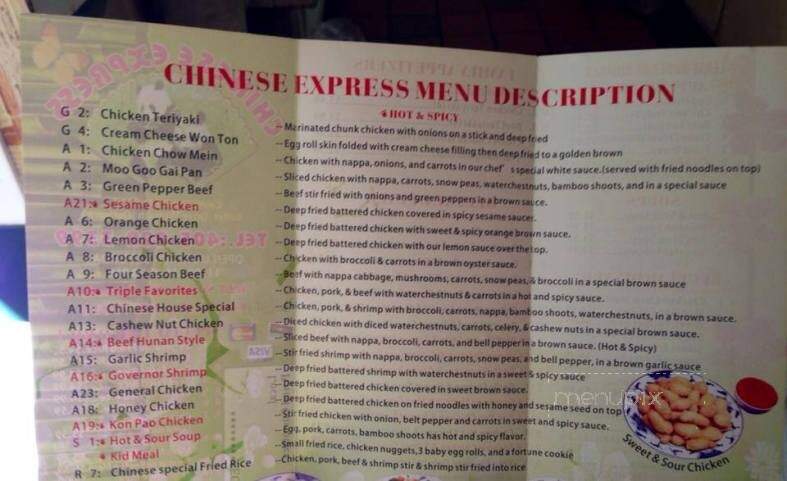 CHINESE EXPRESS MENU DESCRIPTION
HOT & SPICY
G 2: Chicken Teriyaki -- Marinated chunk chicken with onions on a stick and deep fried
G 4: Cream Cheese Won Ton -- Egg roll skin folded with cream cheese filling then deep fried to a golden brown
A 1: Chicken Chow Mein -- Chicken with nappa, onions, and carrots in our chef's special white sauce.(served with fried noodles on top)
A 2: Moo Goo Gai Pan -- Sliced chicken with nappa, carrots, snow peas, waterchestnuts, bamboo shoots, and in a special sauce
A 3: Green Pepper Beef -- Beef stir fried with onions and green peppers in a brown sauce.
A21: Sesame Chicken -- Deep fried battered chicken covered in spicy sesame sauce.
A 6: Orange Chicken -- Deep fried battered chicken with sweet & spicy orange brown sauce.
A 7: Lemon Chicken -- Deep fried battered chicken with our lemon sauce over the top.
A 8: Broccoli Chicken -- Chicken with broccoli & carrots in a brown oyster sauce.
A 9: Four Season Beef -- Beef with nappa cabbage, mushrooms, carrots, snow peas, & broccoli in a special brown sauce
A10: Triple Favorites -- Chicken, pork, & beef with waterchestnuts & carrots in a hot and spicy sauce.
A11: Chinese House Special -- Chicken, pork & shrimp with broccoli, carrots, nappa, bamboo shoots, waterchestnuts, in a brown sauce.
A13: Cashew Nut Chicken -- Diced chicken with diced waterchestnuts, carrots, celery, & cashew nuts in a special brown sauce.
A14: Beef Hunan Style -- Sliced beef with nappa, broccoli, carrots, and bell pepper in a brown sauce. (Hot & Spicy)
A15: Garlic Shrimp -- Stir fried shrimp with nappa, broccoli, carrots, snow peas, and bell pepper, in a brown garlic sauce
A16: Governor Shrimp -- Deep fried battered shrimp with waterchestnuts in a sweet & spicy sauce
A23: General Chicken -- Deep fried battered chicken covered in sweet brown sauce.
A18: Honey Chicken -- Deep fried battered chicken on fried noodles with honey and sesame seed on top
A19: Kon Pao Chicken -- Stir fried chicken with onion, belt pepper and carrots in sweet and spicy sauce.
S 1: Hot & Sour Soup -- Egg, pork, carrots, bamboo shoots has hot and spicy flavor.
Kid Meal -- Small fried rice, chicken nuggets, 3 baby egg rolls, and a fortune cookie
R 7: Chinese special Fried Rice -- Chicken, pork, beef & shrimp stir & shrimp stir fried into rice
menupix
Sweet & Sour Chicken